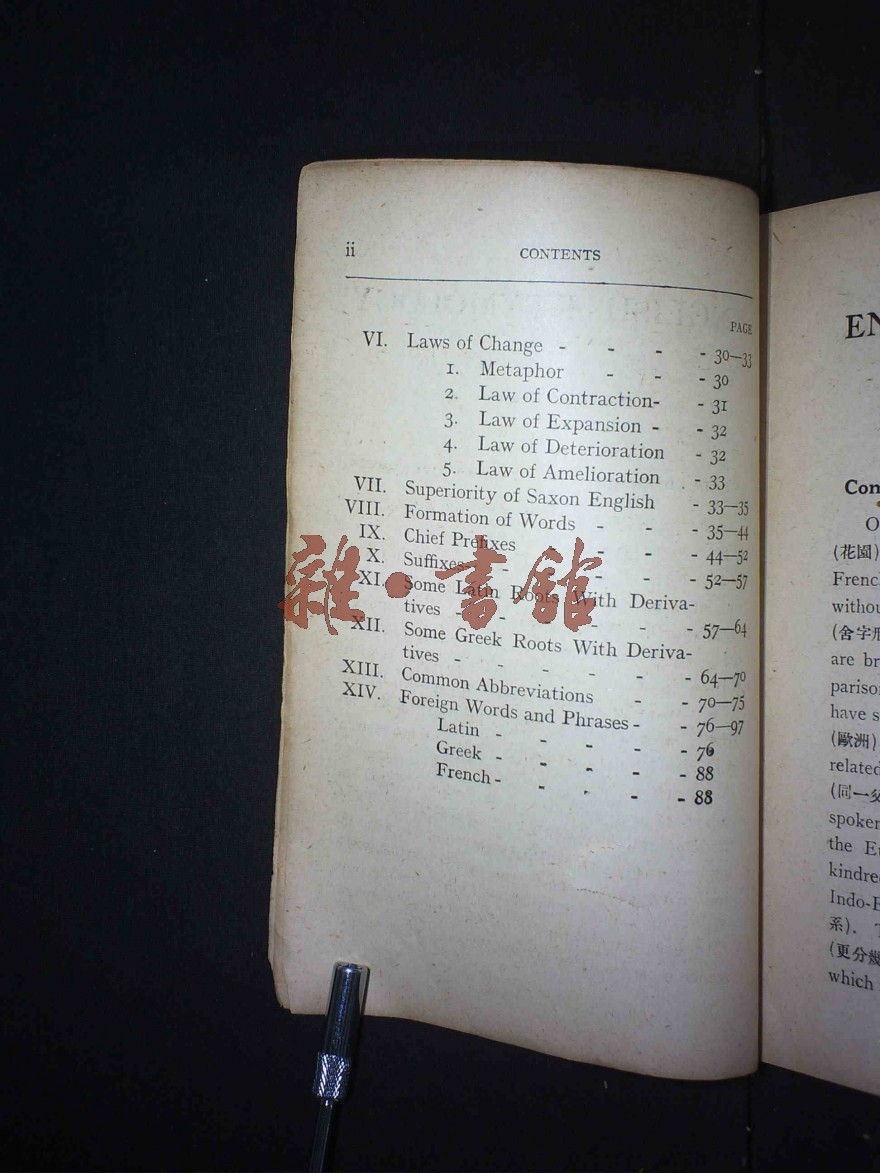 ii
CONTENTS
PAGE
VI. Laws of Change - - - - 30—33
1. Metaphor - - - 30
2. Law of Contraction- - 31
3. Law of Expansion - - 32
4. Law of Deterioration - 32
5. Law of Amelioration - 33
VII. Superiority of Saxon English - 33—35
VIII. Formation of Words - - - 35—44
IX. Chief Prefixes - - - - 44—52
X. Suffixes - - - - - 52—57
XI. Some Latin Roots With Deriva-
tives - - - - - 57—64
XII. Some Greek Roots With Deriva-
tives - - - - - 64—70
XIII. Common Abbreviations - - 70—75
XIV. Foreign Words and Phrases - - 76—97
Latin - - - - - 76
Greek - - - - - 88
French - - - - - 88
雜·書館
EN
Com
O
(花園)
French
withou
(舍字形
are br
parison
have s
(歐洲)
related
(同一父
spoken
the En
kindred
Indo-E
系). T
(更分幾
which